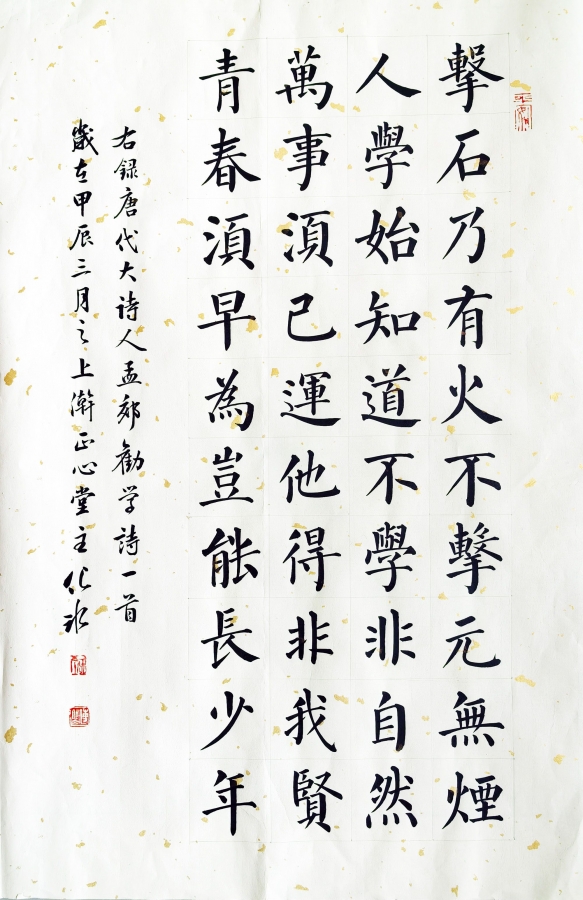 擊石乃有火不擊元無煙
人學始知道不學非自然
萬事須已運他得非我賢
青春須早為豈能長少年
右錄唐代大詩人孟郊勸学詩一首
歲在甲辰三月之上澣正心堂主化冰